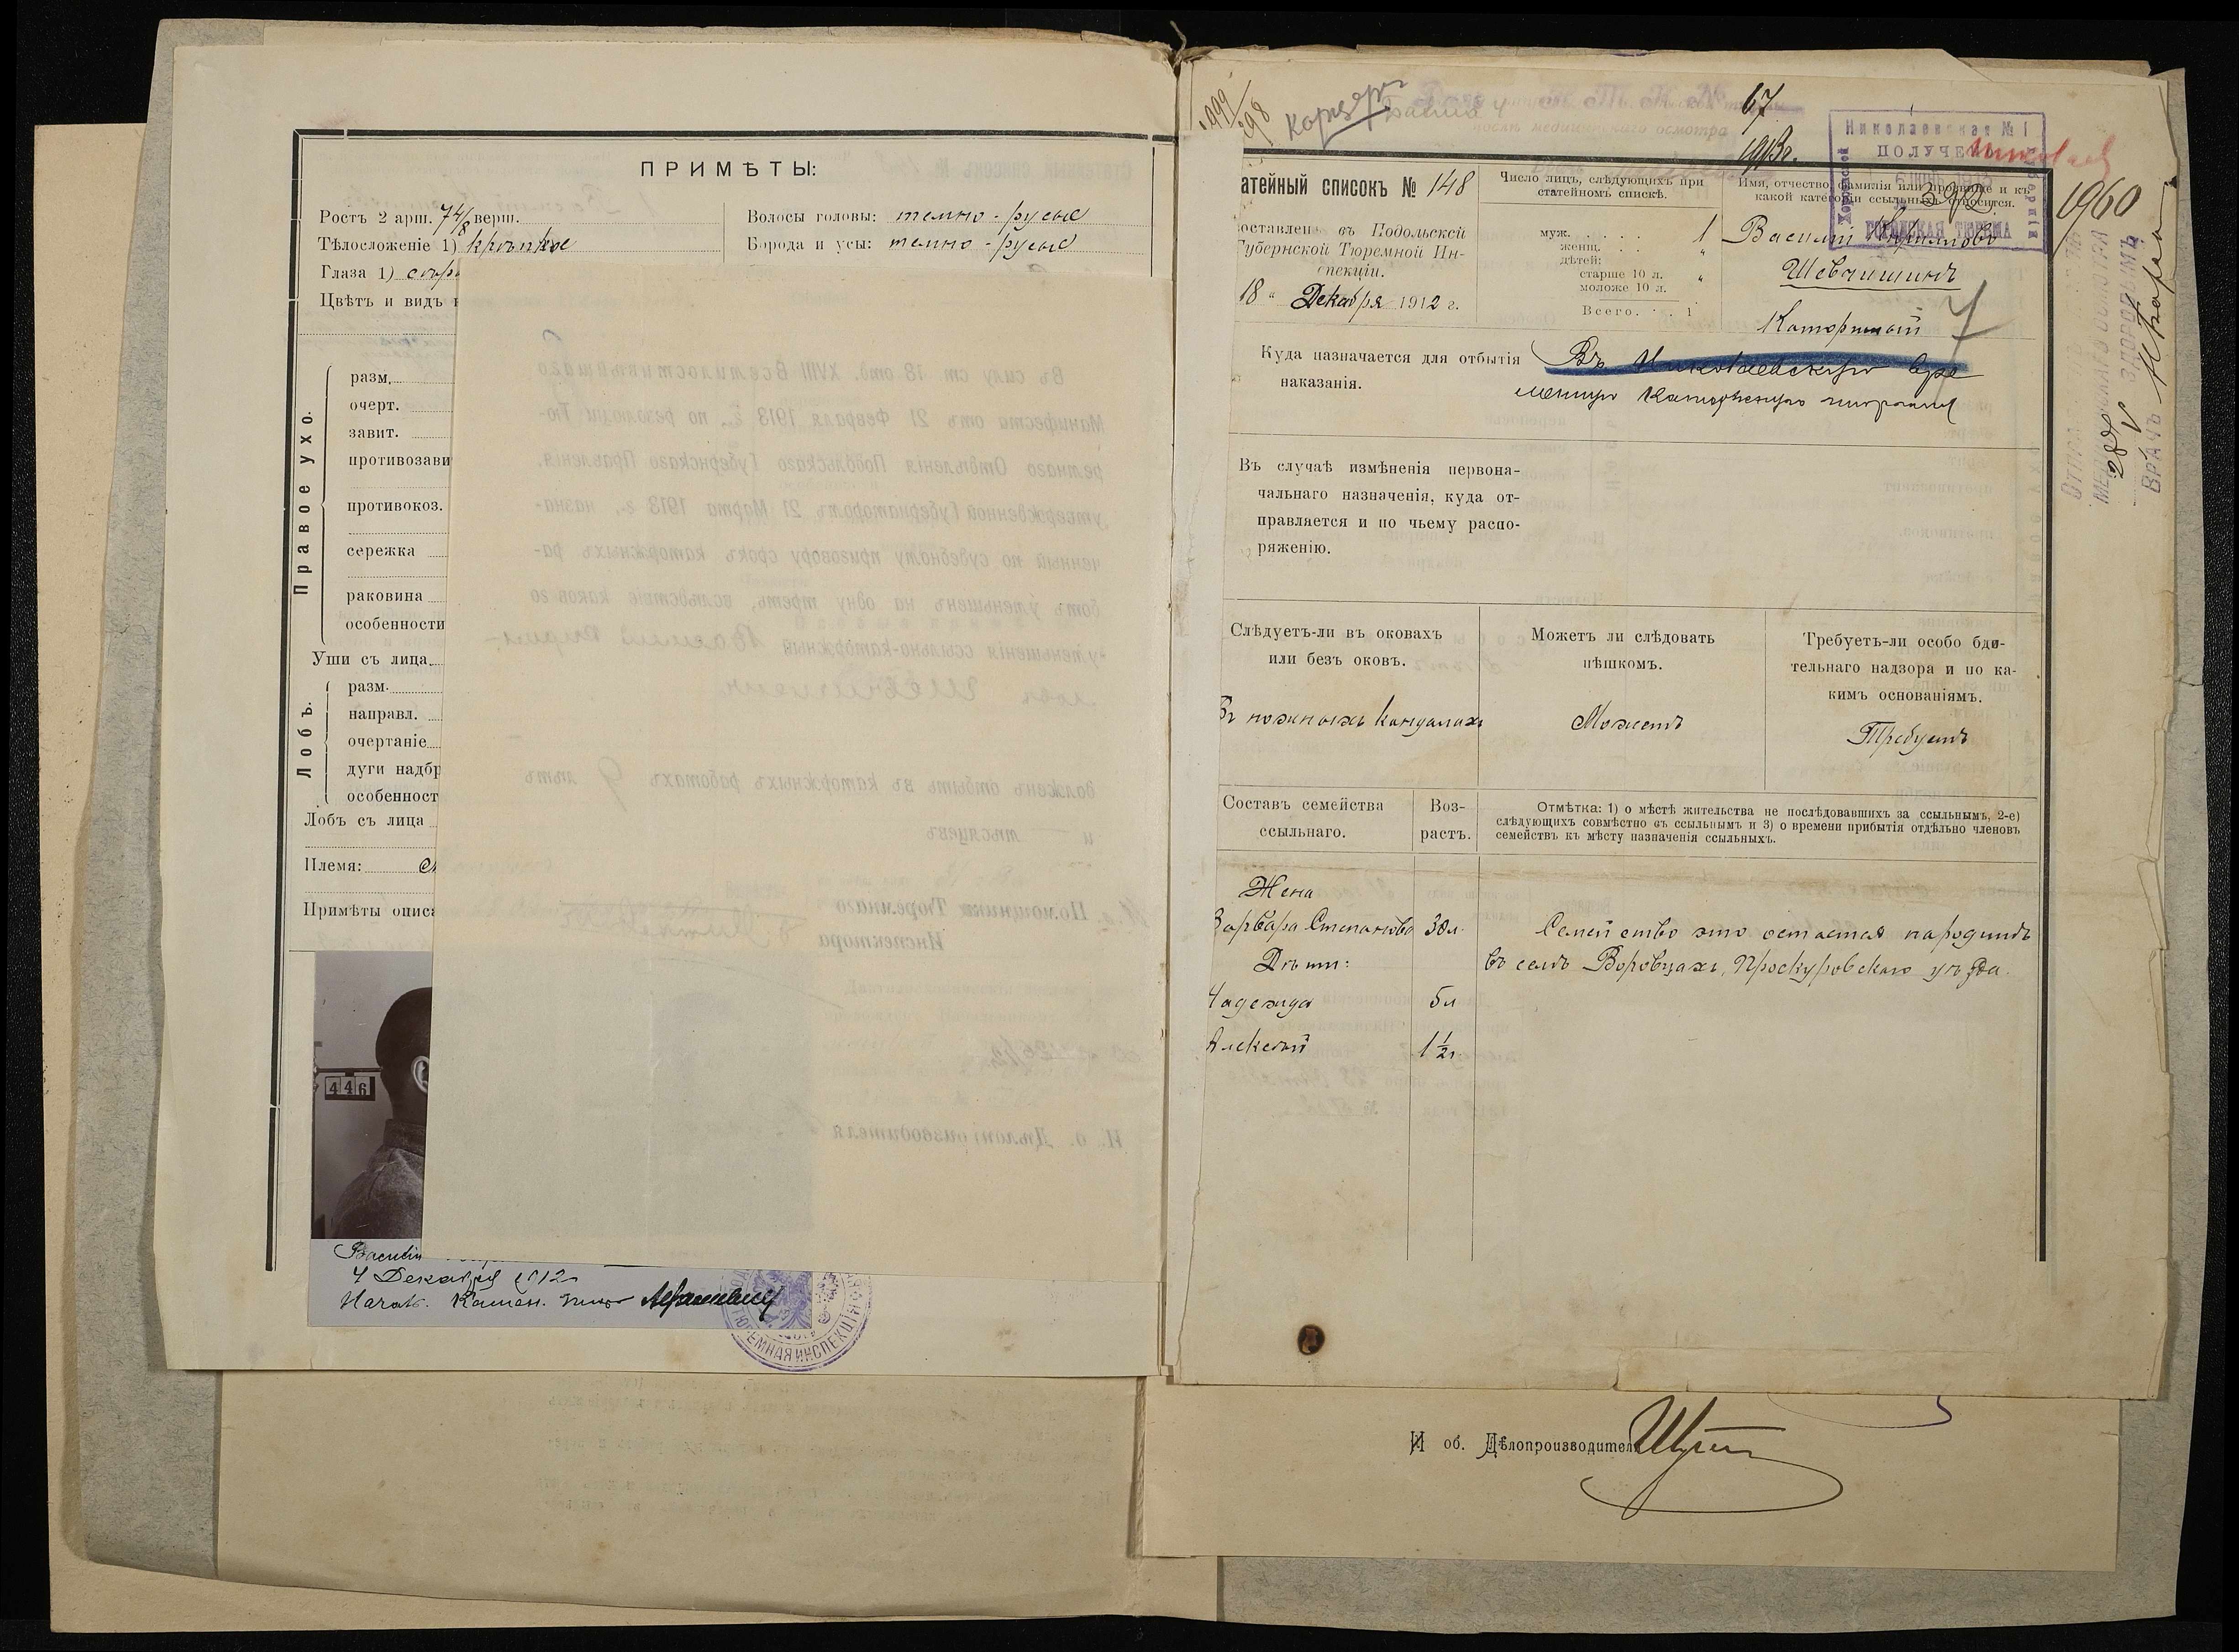 ПРИМѢТЫ:
Ростъ 2 арш. 7 4/8 верш.
Волосы головы: темно-русые
Тѣлосложеніе 1) крѣпкое
Борода и усы: темно-русые
Глаза 1)
Цвѣтъ и видъ
Правое ухо.
разм.
очерт.
завит.
противозави
противокоз.
сережка
раковина
особенности
Уши съ лица
Лобъ.
разм.
направл.
очертаніе
дуги надбр
особенност
Лобъ съ лица
Племя:
Примѣты описа
Въ силу ст 18 отд. XVIII Всемилостивѣйшаго
Манифеста отъ 21 Февраля 1913 г., по резолюціи Тю-
ремнаго Отдѣленія Подольскаго Губернскаго Правленія,
утвержденной Губернаторомъ 21 Марта 1913 г., назна-
ченный по судебному приговору срокъ каторжныхъ ра-
ботъ уменьшенъ на одну треть, вслѣдствіе каковаго
уменьшенія ссыльно-каторжный Василій Кирил-
ловъ Шевчишинъ
долженъ отбыть въ каторжныхъ работахъ 9 лѣтъ
и — мѣсяцевъ
Помощникъ Тюремнаго
Инспектора
И. о. Дѣлопроизводителя
446
Василій
4 Декабря 1912
Начал. Камен.
ТЮРЕМНАЯ ИНСПЕКЦІЯ
1999/298
карцеръ
Башня 4
67
1913г.
Николаевская № 1
ПОЛУЧЕ
Херсонской
Губерніи
ГОРОДСКАЯ ТЮРЬМА
392
1960
атейный списокъ № 148
Число лицъ, слѣдующихъ при
статейномъ спискѣ.
Имя, отчество, фамилія или прозвище и къ
какой категоріи ссыльныхъ относится.
оставленъ въ Подольской
Губернской Тюремной Ин-
спекціи.
18 " Декабря 1912 г.
муж. 1
женщ. "
дѣтей:
старше 10 л. "
моложе 10 л.
Всего. 1
Василій Кирилловъ
Шевчишинъ
Каторжный
Куда назначается для отбытія
наказанія.
Въ Николаевскую вре
менную каторжную тюрьму
Въ случаѣ измѣненія первона-
чальнаго назначенія, куда от-
правляется и по чьему распо-
ряженію.
Слѣдуетъ-ли въ оковахъ
или безъ оковъ.
Можетъ ли слѣдовать
пѣшкомъ.
Требуетъ-ли особо бди-
тельнаго надзора и по ка-
кимъ основаніямъ.
Въ ножныхъ кандалахъ
Можетъ
Требуетъ
Составъ семейства
ссыльнаго.
Воз-
растъ.
Отмѣтка: 1) о мѣстѣ жительства не послѣдовавшихъ за ссыльнымъ, 2-е)
слѣдующихъ совмѣстно съ ссыльнымъ и 3) о времени прибытія отдѣльно членовъ
семействъ къ мѣсту назначенія ссыльныхъ.
Жена
Варвара Степановна 30л.
Дѣти:
Надежда 5л
Алексѣй 1 1/2г.
Семейство это остается на родинѣ
въ селѣ Воровцахъ, Проскуровскаго уѣзда.
ВРАЧЪ
И об. Дѣлопроизводителя